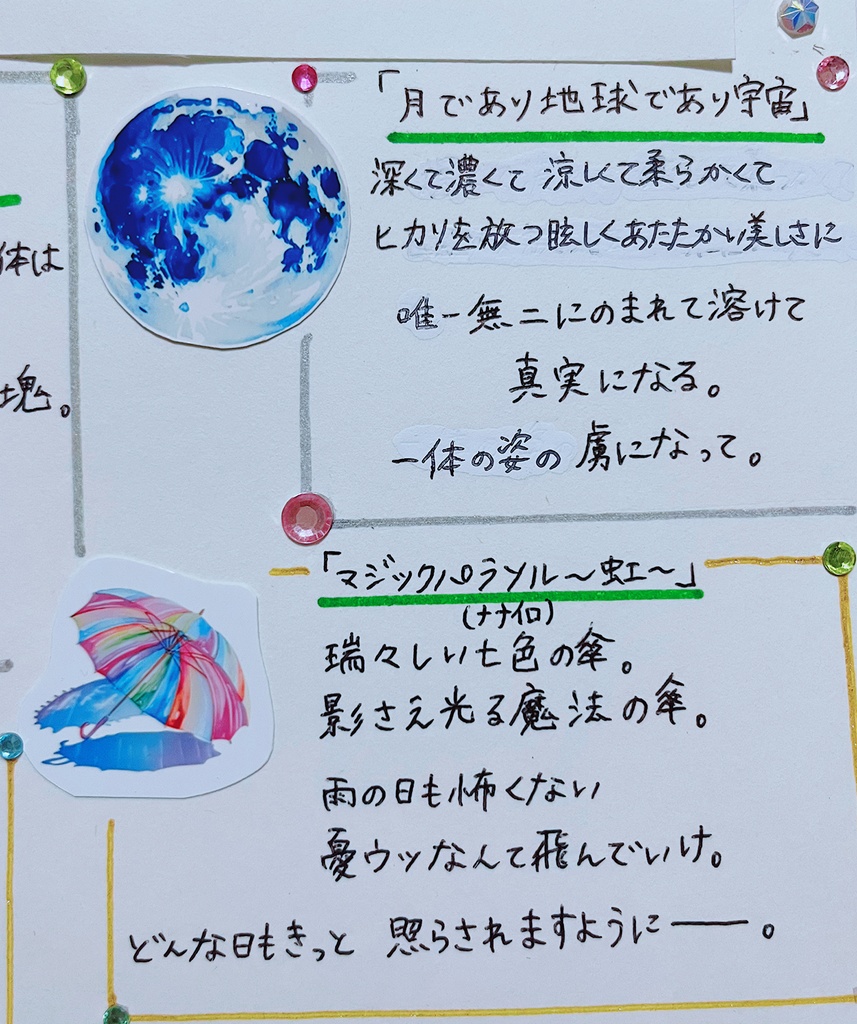 「月であり地球であり宇宙」
深くて濃くて 涼しくて柔らかくて
ヒカリを放つ眩しくあたたかい美しさに
唯一無二にのまれて溶けて
真実になる。
一体の姿の虜になって。
体は
塊。
「マジックパラソル〜虹〜」
(ナナイロ)
瑞々しい七色の傘。
影さえ光る魔法の傘。
雨の日も怖くない
憂ウツなんて飛んでいけ。
どんな日もきっと 照らされますように――。